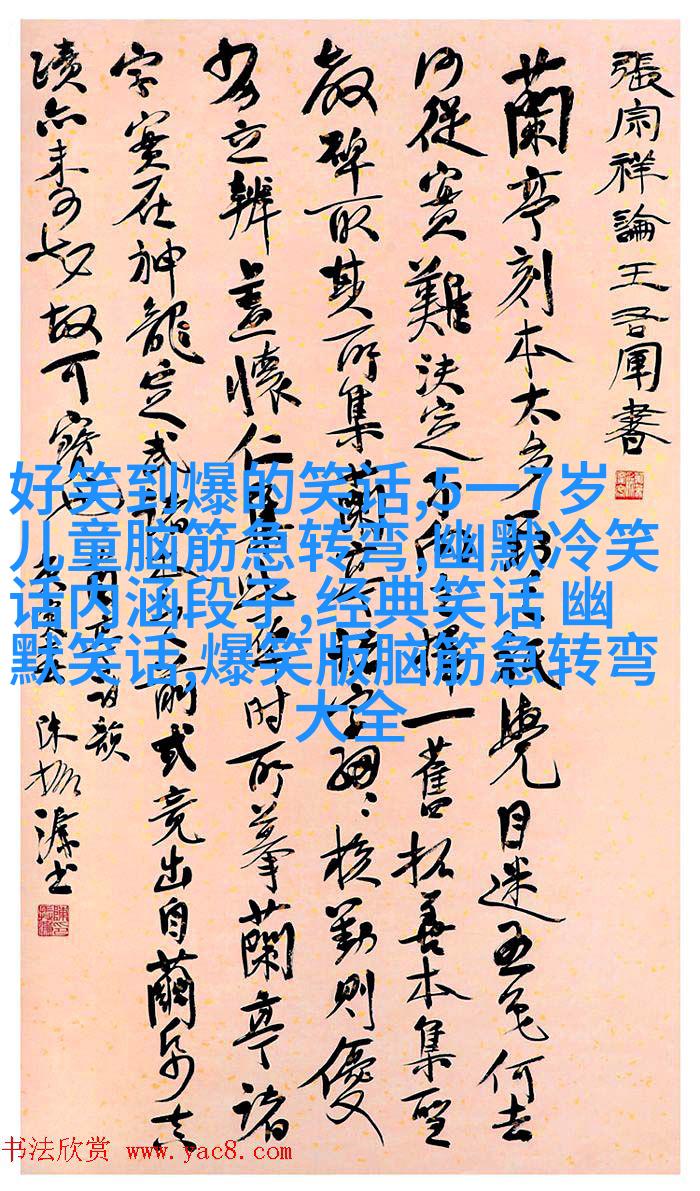 張宗祥論王右軍書
蘭亭刻本太多
目迷五色何去
何從實難決定
一舊拓善本集聖
教碑取其所集蘭
核勘則優
劣立辨蓋懷仁
時所摹蘭亭諸
字實在神龍定武
前或竟出自蘭亭真
蹟亦未可知故可寶也
好笑到爆的笑话,5一7岁
儿童脑筋急转弯,幽默冷笑
话内涵段子,经典笑话 幽
默笑话,爆笑版脑筋急转弯
大全
书法欣赏 www.yac8.com